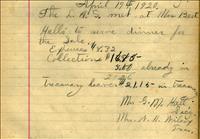 April 19th 1920.
The L.A.S. met at Mrs Bert
Hatt's to serve dinner for
the Sale.
Expenses $8.32
Collections $16.95
5.20 already in
Treasury leaves $21.15 in treas.
Mrs. G. M. Hatt
Sec.
Mrs. A. H. Wiley
Treas.